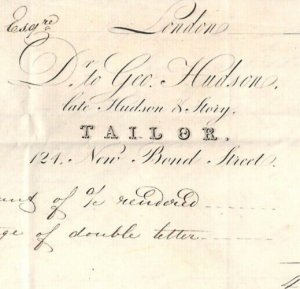 London
Esqre
Dr. to Geo. Hudson.
late Hudson & Story.
TAILOR.
124. New Bond Street.
of a/c rendered
of double letter